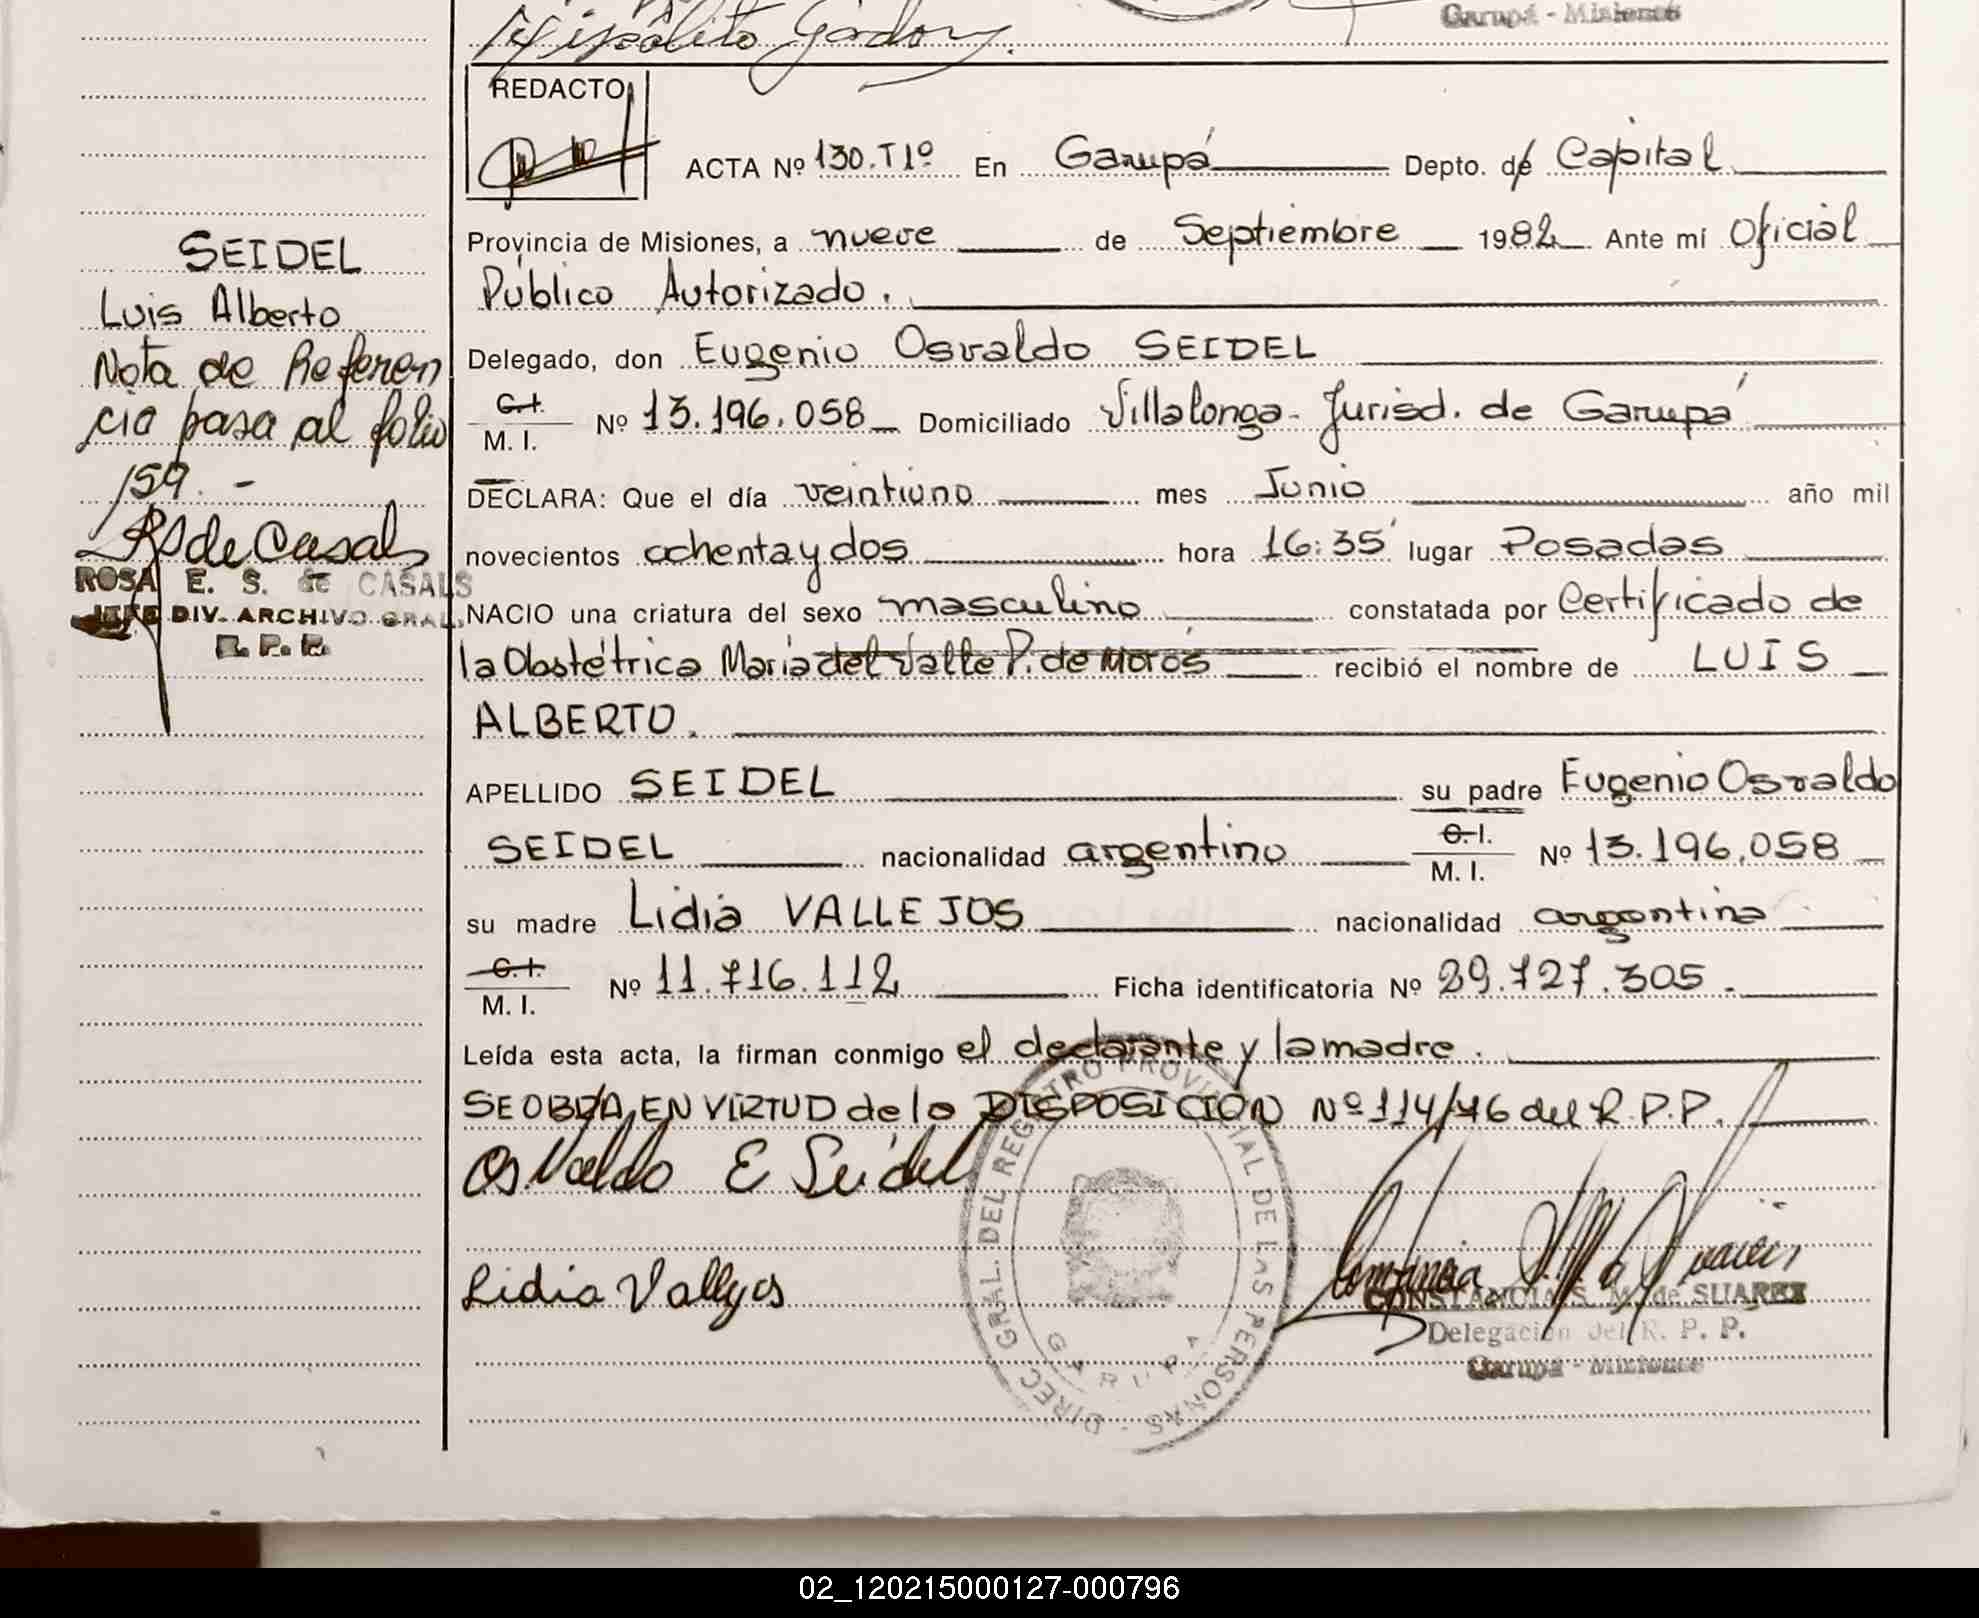 Hipólito Godoy.
Garupá - Misiones
REDACTO
ACTA Nº 130.T1º En Garupá Depto. de Capital
Provincia de Misiones, a nueve de Septiembre 1982 Ante mí Oficial
Público Autorizado.
Delegado, don Eugenio Osvaldo SEIDEL
C.I.
M. I. Nº 13.196.058 Domiciliado Villalonga - Jurisd. de Garupá
DECLARA: Que el día veintiuno mes Junio año mil
novecientos ochenta y dos hora 16:35 lugar Posadas
NACIO una criatura del sexo masculino constatada por Certificado de
la Obstétrica María del Valle P. de Moros recibió el nombre de LUIS
ALBERTO.
APELLIDO SEIDEL su padre Eugenio Osvaldo
SEIDEL nacionalidad argentino C.I. M. I. Nº 13.196.058
su madre Lidia VALLEJOS nacionalidad argentina
C.I.
M. I. Nº 11.716.112 Ficha identificatoria Nº 29.727.305.
Leída esta acta, la firman conmigo el declarante y la madre.
SE OBRA EN VIRTUD de la DISPOSICION Nº 114/76 del R.P.P.
Osvaldo E Seidel
Lidia Vallejos
DIREC. GRAL. DEL REGISTRO PROVINCIAL DE LAS PERSONAS -
GARUPA
CONSTANCIA S. M. de SUAREZ
Delegación del R. P. P.
Garupá - Misiones
SEIDEL
Luis Alberto
Nota de Referen
cia pasa al folio
159. -
RS de Casals
ROSA E. S. de CASALS
JEFE DIV. ARCHIVO GRAL.
R. P. P.
02_120215000127-000796